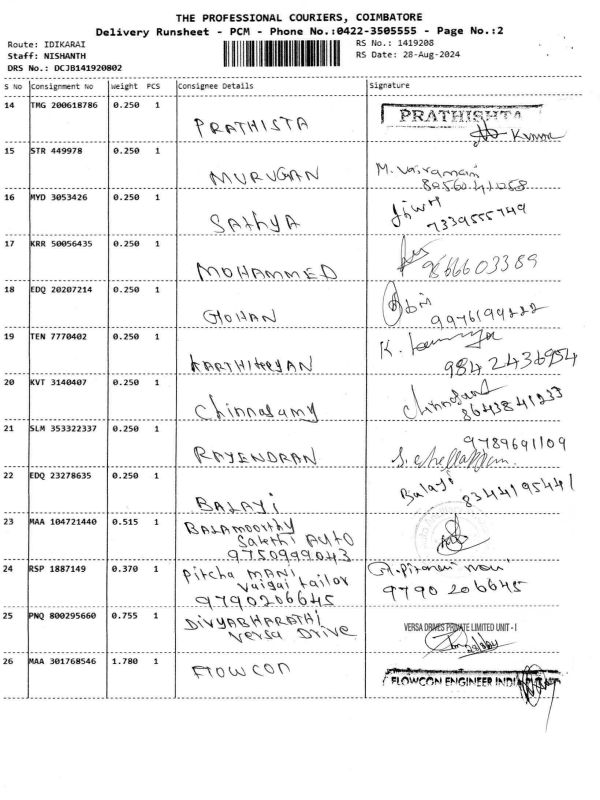 THE PROFESSIONAL COURIERS, COIMBATORE
Delivery Runsheet - PCM - Phone No.:0422-3505555 - Page No.:2
Route: IDIKARAI RS No.: 1419208
Staff: NISHANTH RS Date: 28-Aug-2024
DRS No.: DCJB141920802
S No Consignment No Weight PCS Consignee Details Signature
14 TMG 200618786 0.250 1 PRATHISTA PRATHISHTA
Kumar
15 STR 449978 0.250 1 MURUGAN M. Vairamani
80560 41058
16 MYD 3053426 0.250 1 SATHYA
7339555749
17 KRR 50056435 0.250 1 MOHAMMED 9566603389
18 EDQ 20207214 0.250 1 MOHAN
9976199222
19 TEN 7770402 0.250 1 KARTHIKEYAN K.
9842436954
20 KVT 3140407 0.250 1 Chinnasamy Chinnasamy
8643841233
21 SLM 353322337 0.250 1 RAJENDRAN 9789691109
S. Chellappan
22 EDQ 23278635 0.250 1 BALAJI Balaji
8344195441
23 MAA 104721440 0.515 1 BALAMOORTHY
Sakthi AUTO
9750999043
24 RSP 1887149 0.370 1 Pitcha MANI
Vaigai tailor
9790206645 9790 206645
25 PNQ 800295660 0.755 1 DIVYABHARATHI
Versa Drive VERSA DRIVES PRIVATE LIMITED UNIT - I
26 MAA 301768546 1.780 1 FLOWCON FLOWCON ENGINEER